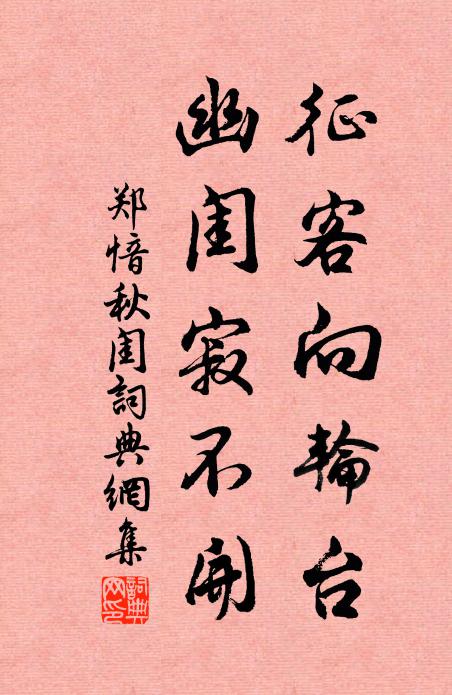 征客向輪台
幽閨寂不開
郑愔秋閨詞典網集
詞典網印